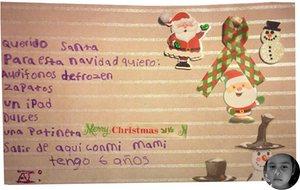 Querido Santa
Para esta navidad quiero:
audifonos defrozen
zapatos
un iPad
Dulces
una Patineta
Merry Christmas
Salir de aqui conmi mami
tengo 6 años